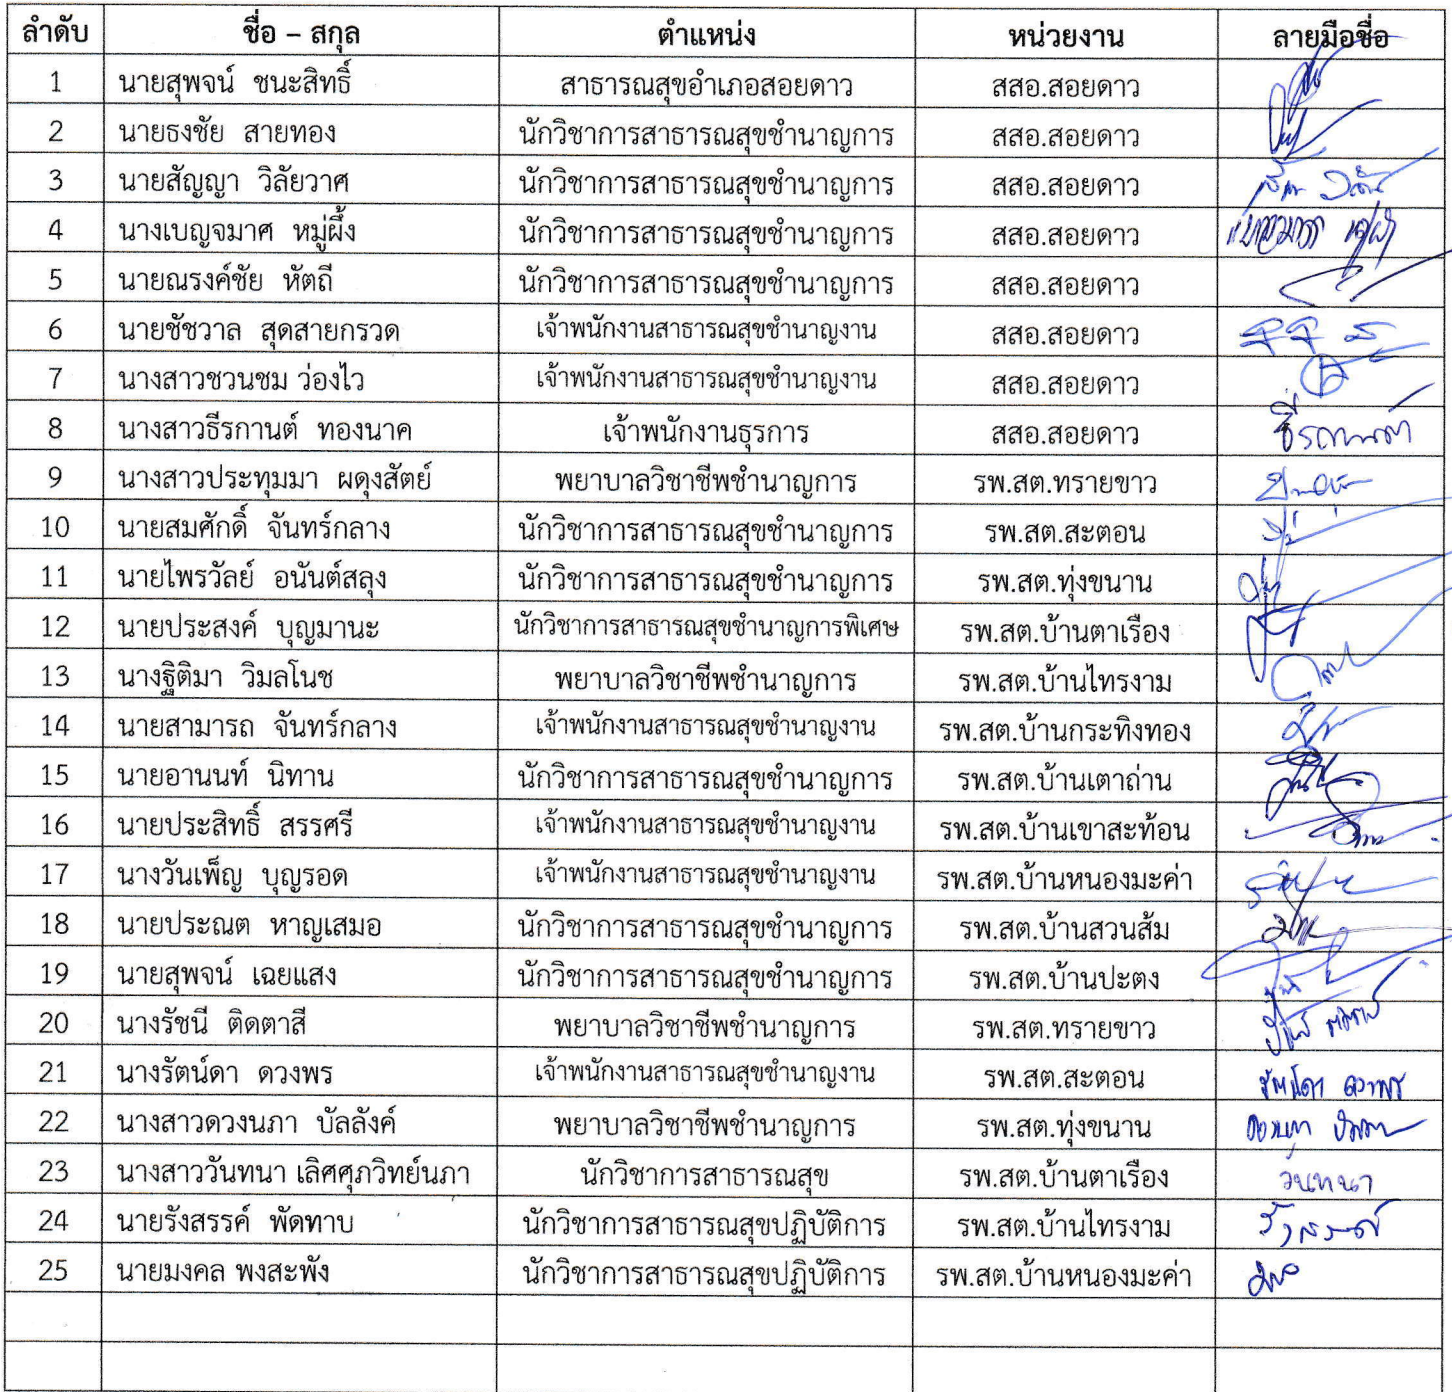 ลำดับ ชื่อ – สกุล ตำแหน่ง หน่วยงาน ลายมือชื่อ
1 นายสุพจน์ ชนะสิทธิ์ สาธารณสุขอำเภอสอยดาว สสอ.สอยดาว
2 นายธงชัย สายทอง นักวิชาการสาธารณสุขชำนาญการ สสอ.สอยดาว
3 นายสัญญา วิลัยวาศ นักวิชาการสาธารณสุขชำนาญการ สสอ.สอยดาว
4 นางเบญจมาศ หมู่ผึ้ง นักวิชาการสาธารณสุขชำนาญการ สสอ.สอยดาว
5 นายณรงค์ชัย หัตถี นักวิชาการสาธารณสุขชำนาญการ สสอ.สอยดาว
6 นายชัชวาล สุดสายกรวด เจ้าพนักงานสาธารณสุขชำนาญงาน สสอ.สอยดาว
7 นางสาวชวนชม ว่องไว เจ้าพนักงานสาธารณสุขชำนาญงาน สสอ.สอยดาว
8 นางสาวธีรกานต์ ทองนาค เจ้าพนักงานธุรการ สสอ.สอยดาว ธีรกานต์
9 นางสาวประทุมมา ผดุงสัตย์ พยาบาลวิชาชีพชำนาญการ รพ.สต.ทรายขาว
10 นายสมศักดิ์ จันทร์กลาง นักวิชาการสาธารณสุขชำนาญการ รพ.สต.สะตอน
11 นายไพรวัลย์ อนันต์สลุง นักวิชาการสาธารณสุขชำนาญการ รพ.สต.ทุ่งขนาน
12 นายประสงค์ บุญมานะ นักวิชาการสาธารณสุขชำนาญการพิเศษ รพ.สต.บ้านตาเรือง
13 นางฐิติมา วิมลโนช พยาบาลวิชาชีพชำนาญการ รพ.สต.บ้านไทรงาม
14 นายสามารถ จันทร์กลาง เจ้าพนักงานสาธารณสุขชำนาญงาน รพ.สต.บ้านกระทิงทอง
15 นายอานนท์ นิทาน นักวิชาการสาธารณสุขชำนาญการ รพ.สต.บ้านเตาถ่าน
16 นายประสิทธิ์ สรรศรี เจ้าพนักงานสาธารณสุขชำนาญงาน รพ.สต.บ้านเขาสะท้อน
17 นางวันเพ็ญ บุญรอด เจ้าพนักงานสาธารณสุขชำนาญงาน รพ.สต.บ้านหนองมะค่า
18 นายประณต หาญเสมอ นักวิชาการสาธารณสุขชำนาญการ รพ.สต.บ้านสวนส้ม
19 นายสุพจน์ เฉยแสง นักวิชาการสาธารณสุขชำนาญการ รพ.สต.บ้านปะตง
20 นางรัชนี ติดตาสี พยาบาลวิชาชีพชำนาญการ รพ.สต.ทรายขาว
21 นางรัตน์ดา ดวงพร เจ้าพนักงานสาธารณสุขชำนาญงาน รพ.สต.สะตอน รัตน์ดา ดวงพร
22 นางสาวดวงนภา บัลลังค์ พยาบาลวิชาชีพชำนาญการ รพ.สต.ทุ่งขนาน
23 นางสาววันทนา เลิศศุภวิทย์นภา นักวิชาการสาธารณสุข รพ.สต.บ้านตาเรือง วันทนา
24 นายรังสรรค์ พัดทาบ นักวิชาการสาธารณสุขปฏิบัติการ รพ.สต.บ้านไทรงาม รังสรรค์
25 นายมงคล พงสะพัง นักวิชาการสาธารณสุขปฏิบัติการ รพ.สต.บ้านหนองมะค่า